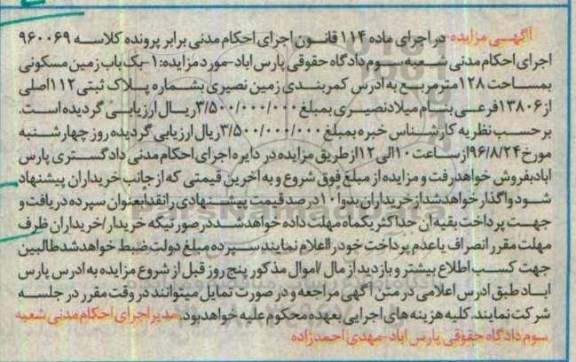 آگهی مزایده-در اجرای ماده ۱۱۴ قانون اجرای احکام مدنی برابر پرونده کلاسه ۹۶۰۰۶۹
اجرای احکام مدنی شعبه سوم دادگاه حقوقی پارس اباد-مورد مزایده:۱-یک باب زمین مسکونی
بمساحت ۱۲۸ مترمربع به ادرس کمربندی زمین نصیری بشماره پلاک ثبتی ۱۱۲ اصلی
از ۱۳۸۰۶ فرعی بنام میلاد نصیری بمبلغ ۳/۵۰۰/۰۰۰/۰۰۰ ریال ارزیابی گردیده است.
بر حسب نظریه کارشناس خبره بمبلغ ۳/۵۰۰/۰۰۰/۰۰۰ ریال ارزیابی گردیده روز چهارشنبه
مورخ ۹۶/۸/۲۴ از ساعت ۱۰ الی ۱۲ از طریق مزایده در دایره اجرای احکام مدنی دادگستری پارس
اباد بفروش خواهد رفت و مزایده از مبلغ فوق شروع و به اخرین قیمتی که از جانب خریداران پیشنهاد
شود واگذار خواهد شد از خریداران بدوا ۱۰ درصد قیمت پیشنهادی را نقدا بعنوان سپرده دریافت و
جهت پرداخت بقیه ان حداکثر یکماه مهلت داده خواهد شد در صورتیکه خریدار/خریداران ظرف
مهلت مقرر انصراف یا عدم پرداخت خود را اعلام نمایند سپرده مبلغ دولت ضبط خواهد شد طالبین
جهت کسب اطلاع بیشتر و بازدید از مال /اموال مذکور پنج روز قبل از شروع مزایده به ادرس پارس
اباد طبق ادرس اعلامی در متن اگهی مراجعه و در صورت تمایل میتوانند در وقت مقرر در جلسه
شرکت نمایند. کلیه هزینه های اجرایی بعهده محکوم علیه خواهد بود. مدیر اجرای احکام مدنی شعبه
سوم دادگاه حقوقی پارس اباد-مهدی احمدزاده